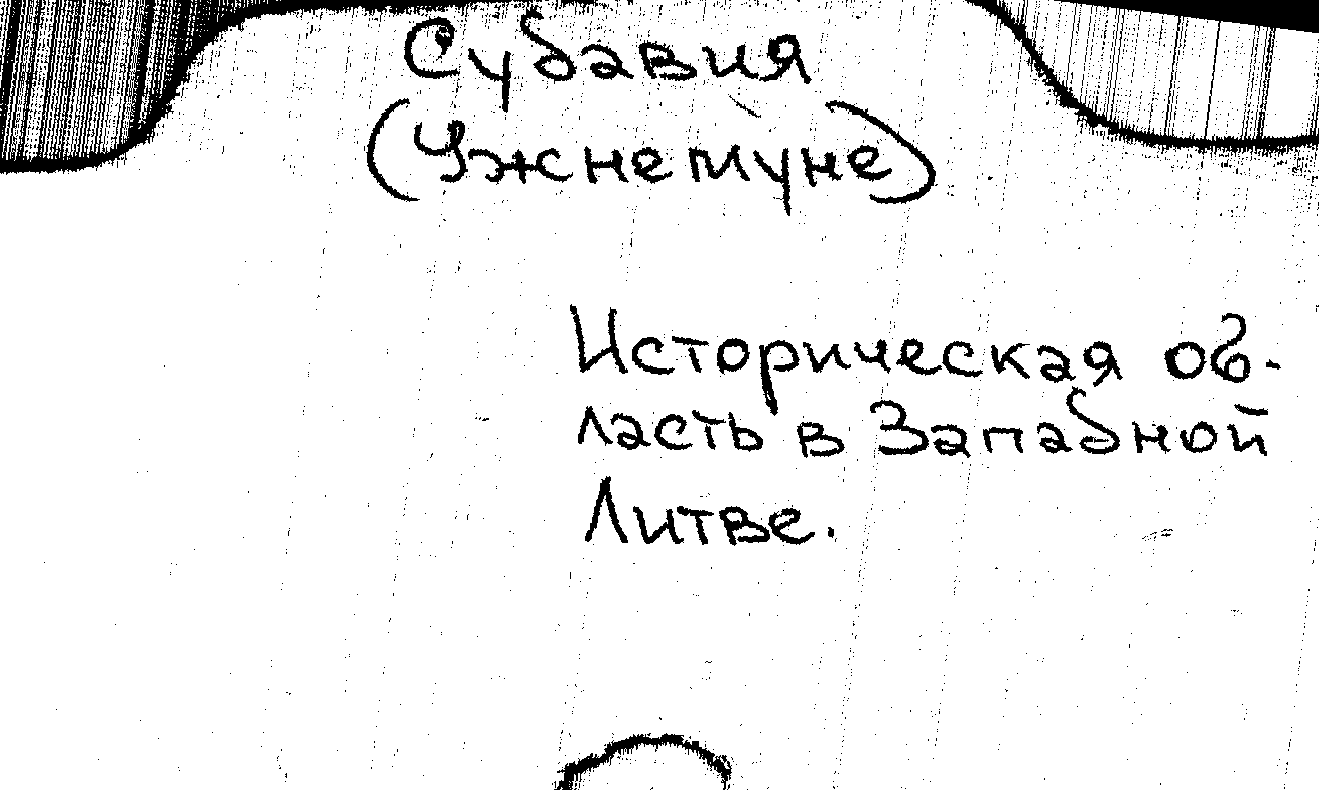 Судавия
(Ужнемуне)
Историческая об-
ласть в Западной
Литве.